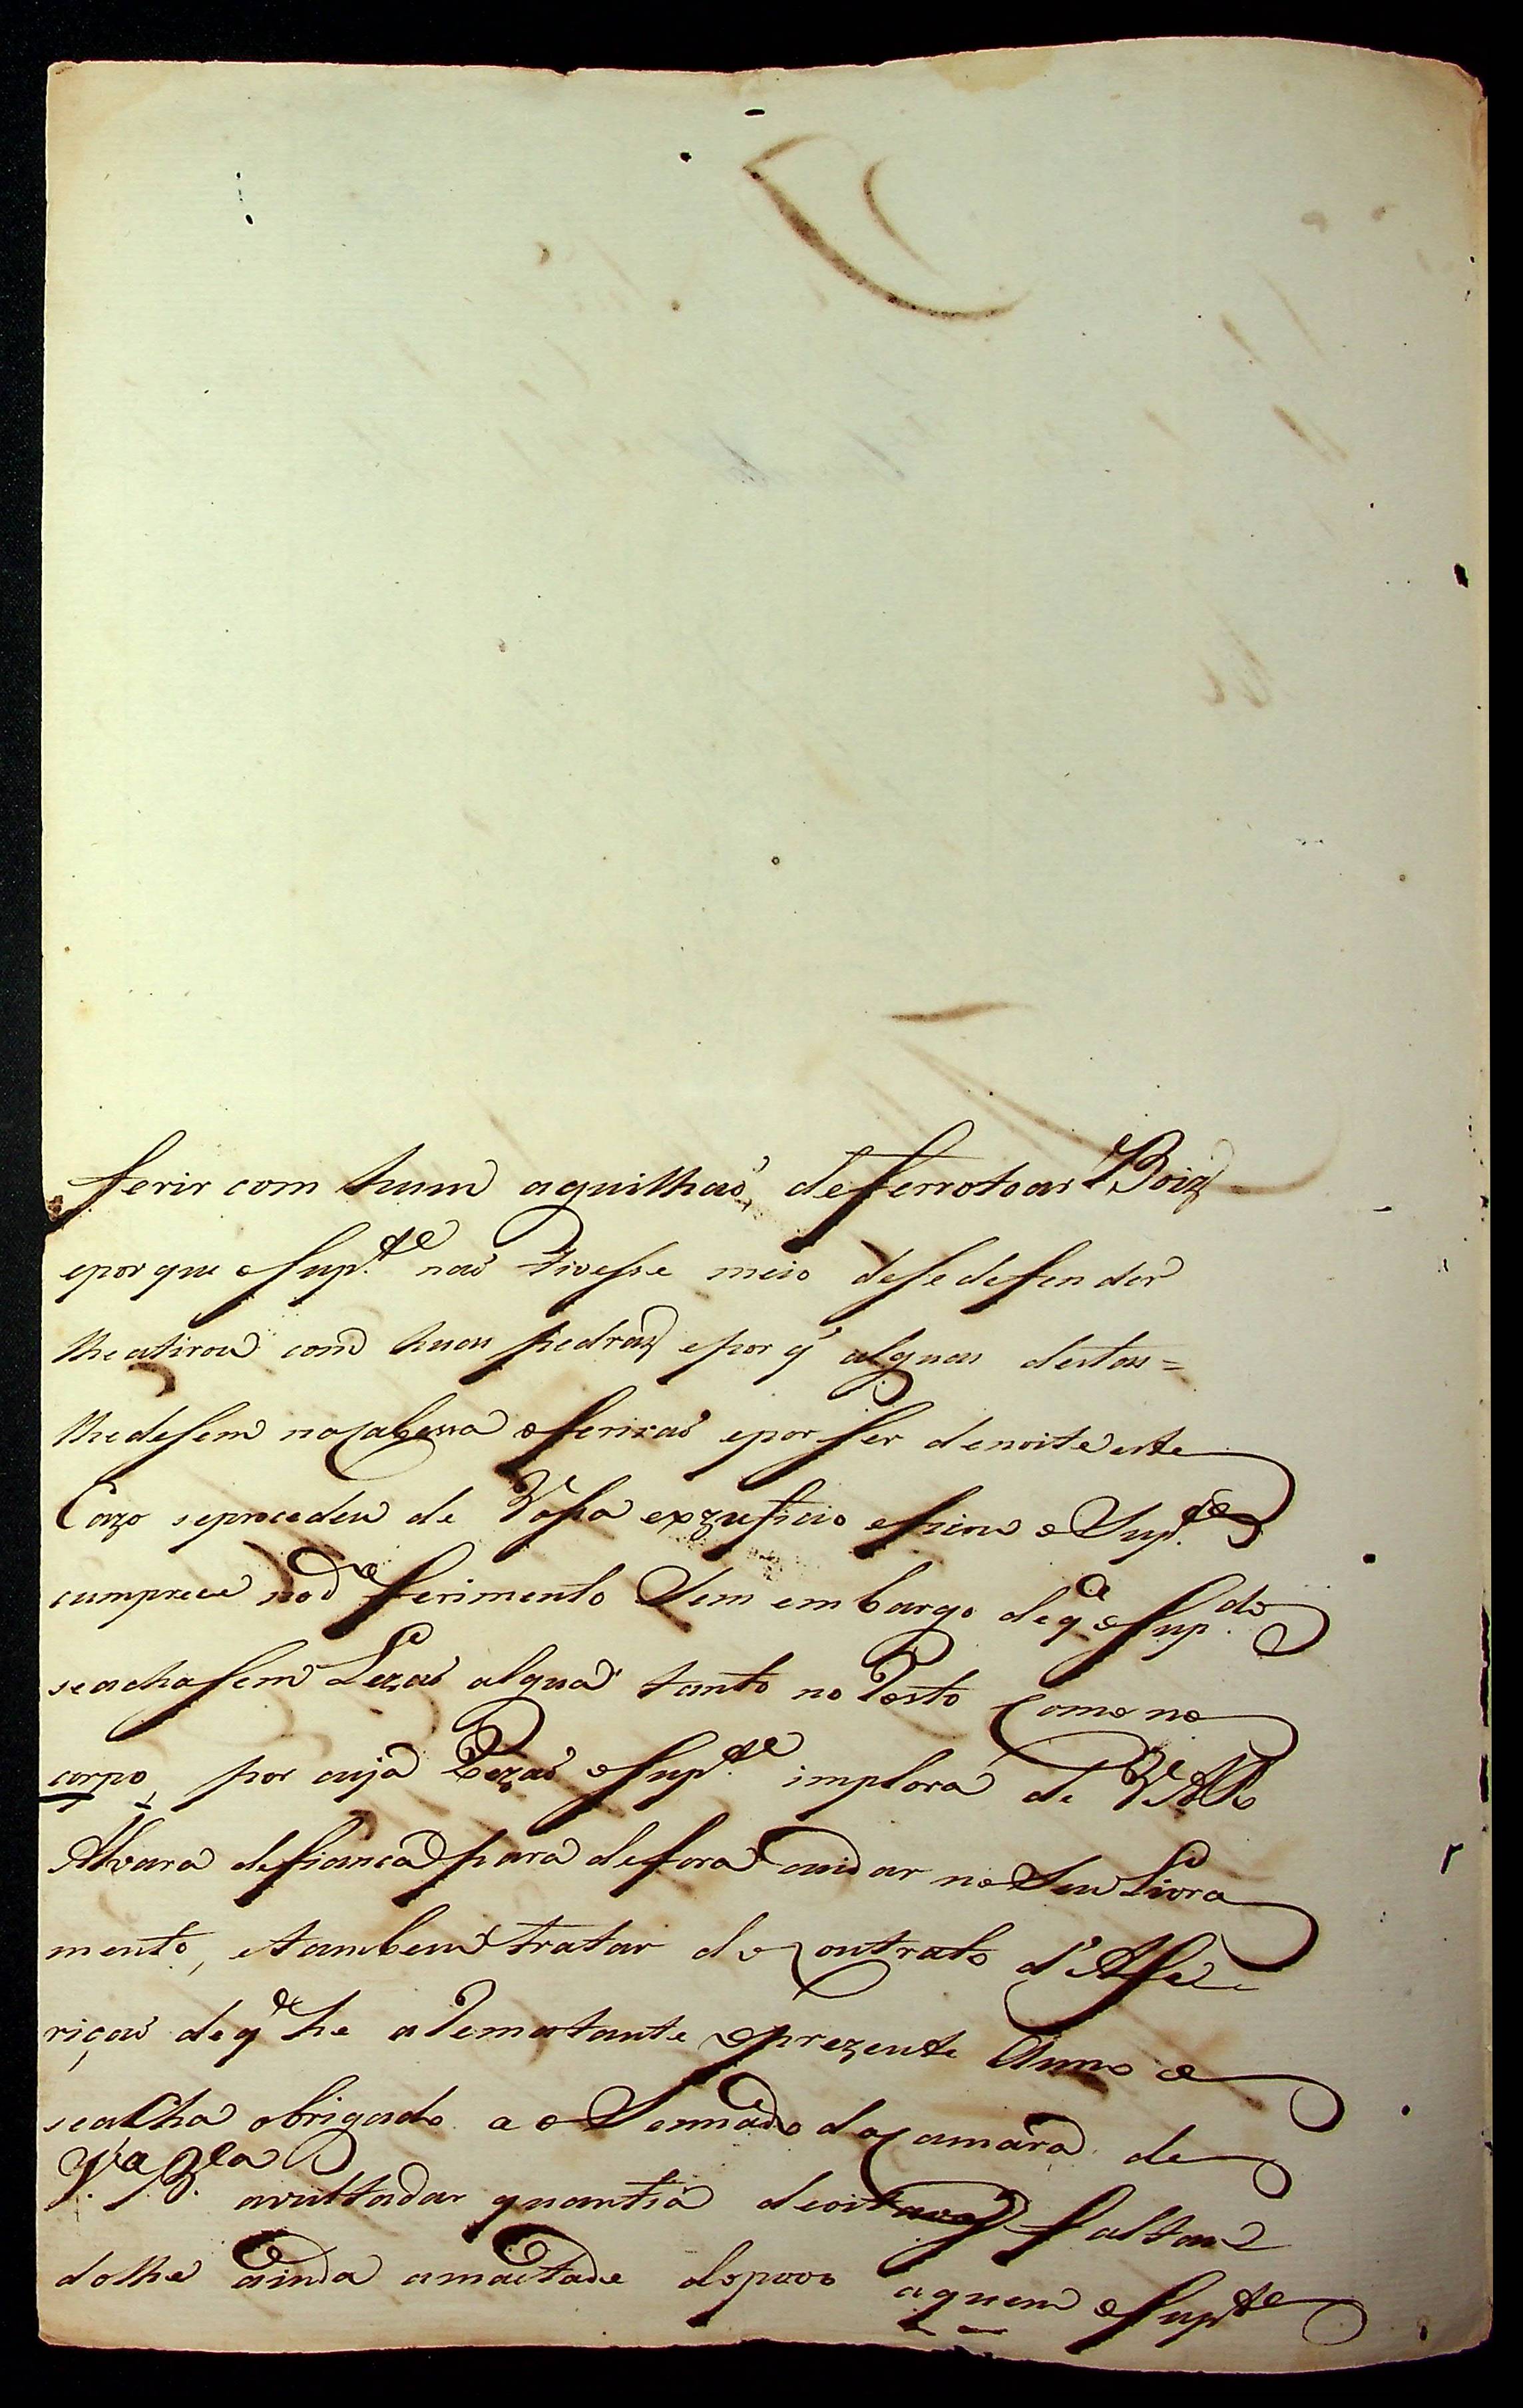 ferir com hum aguilhaõ, deferrotoar Boiz
eporque oSup.te naõ tivesse meio desedefender
lheatirou com huas pedraz epor q' alguas destas =
lhedesem nacabessa oferiraõ epor ser denoite este
Cazo seprocedeu de Vassa exzuficio eficou o Sup.te
cumprece nod.e ferimento Sem embargo deq.e oSup.do
seachasem Lezaõ algua tanto no Rosto Como no
corpo, por cuja Rezaõ oSup.te implora de VAR
Alvara defianca para defora cuidar no Seu Livra
mento, etambem tratar do Contrato d'Afe
riçaõ deq.e he aRematante oprezente Anno e
seacha obrigado ao Sennado daCamara de
V.a R.la avultadar quantia deoitavas faltan
dolhe ainda ametade dopovo aquem oSup.te